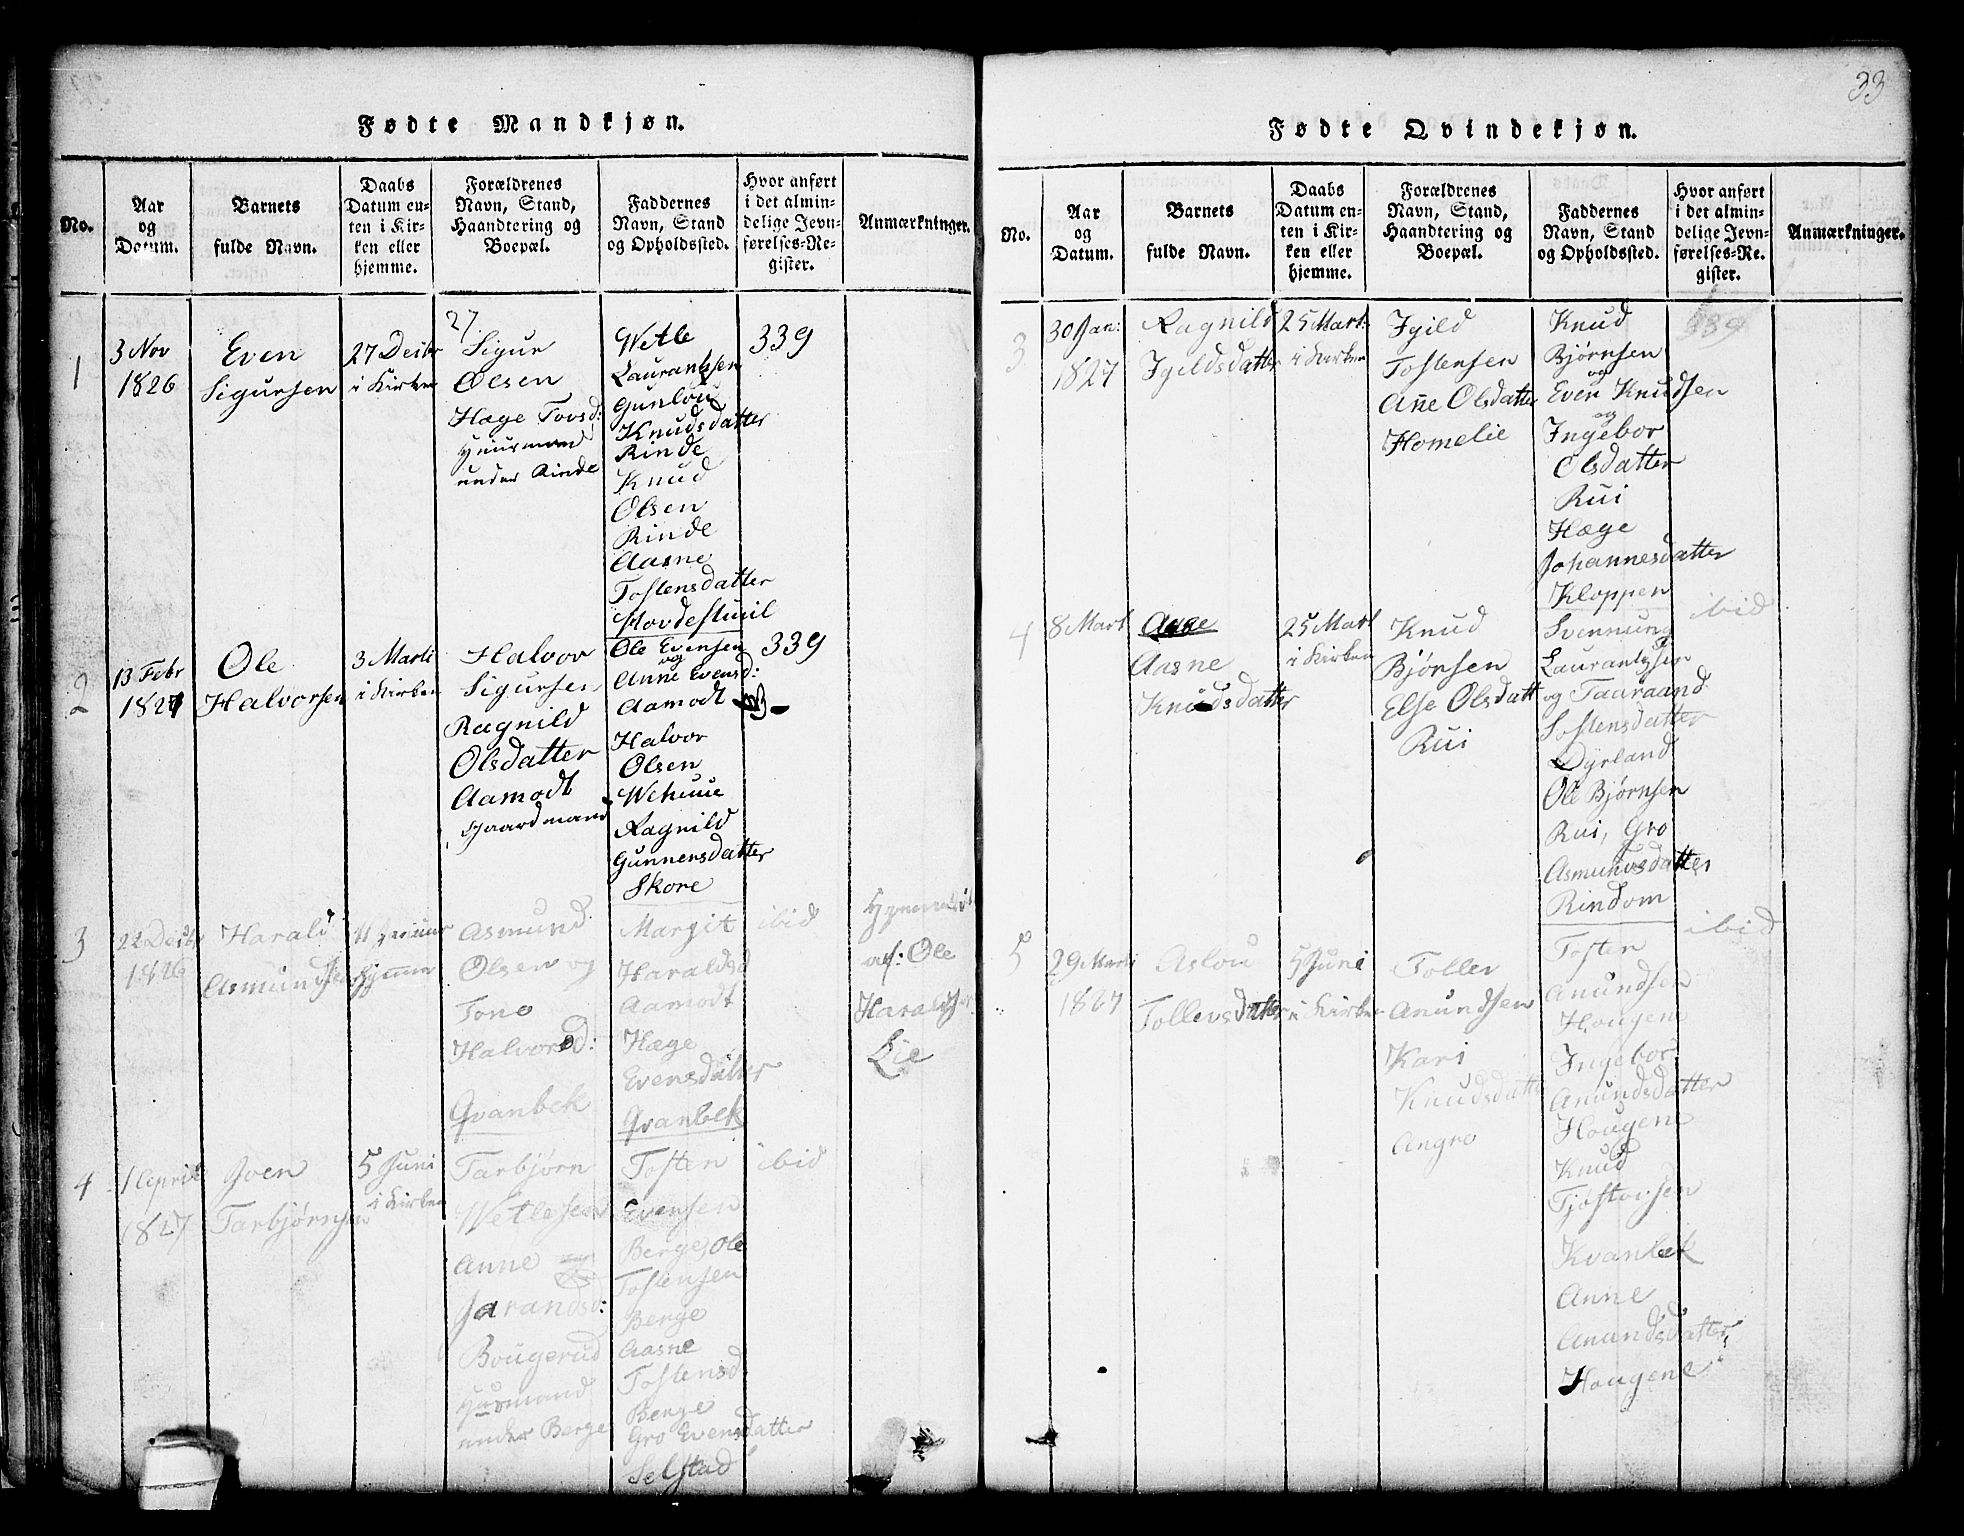 33
Fødte Mandkjøn.
No.
Aar
og
Datum.
Barnets
fulde Navn.
Daabs
Datum en-
ten i Kir-
ken eller
hjemme.
Forældrenes
Navn, Stand,
Haandtering og
Boepæl.
Faddernes
Navn, Stand
og Opholdssted.
Hvor anført
i det almin-
delige Jevn-
førelses-Re-
gister.
Anmærkninger.
1
3 Nov
1826
Even
Sigursen
27 Decbr
i Kirken
27
Sigur
Olsen
Hæge Tovsd:
Huusmand
under Rinde
Wetle
Laurantsen
Gunlou
Knudsdatter
Rinde
Knud
Olsen
Rinde
Aasne
Tostensdatter
339
2
13 Febr
1827
Ole
Halvorsen
3 Marti
i Kirken
Halvor
Sigursen
Ragnild
Olsdatter
Aamodt
Gaardmand
Ole Evensen
og
Anne Evensd:
Aamodt
Halvor
Olsen
Ragnild
Gunnersdatter
Skore
339
3
22 Decbr
1826
Harald
Asmundsen
hjemme
Asmund
Olsen og
Tone
Halvorsd:
Qvanbek
Margit
Haraldsd
Aamodt
Hæge
Evensdatter
Qvanbek
ibid
af: Ole
Haraldsen
Lie
4
1 April
1827
Joen
Tarbjørnsen
5 Juni
i Kirken
Tarbjørn
Wetlesen
Anne
Jarandsd:
Bougerud
Husmand
under Berge
Tosten
Evensen
Berge, Ole
Tostensen
Berge
Aasne
Tostensd
Berge
Gro Evensdatter
Selstad
ibid
Fødte Qvindekjøn.
No.
Aar
og
Datum.
Barnets
fulde Navn.
Daabs
Datum en-
ten i Kir-
ken eller
hjemme.
Forældrenes
Navn, Stand,
Haandtering og
Boepæl.
Faddernes
Navn, Stand
og Opholdssted.
Hvor anført
i det almin-
delige Jevn-
førelses-Re-
gister.
Anmærkninger.
3
30 Jan:
1827
Ragnild
Igildsdatter
25 Mart:
i Kirken
Igild
Tostensen
Anne Olsdatter
Homelie
Knud
Bjørnsen
og
Even Knudsen
og
Ingebor
Olsdatter
Rui
Hæge
Johannesdatter
Kloppen
339
4
8 Mart
Aasne
Knudsdatter
25 Mart
i Kirken
Knud
Bjørnsen
Else Olsdatt
Rui
Svennung
Laurantsen
og Taaraand
Tostensdatter
Dyrland
Ole Bjørnsen
Rui, Gro
Asmundsdatter
Rindom
ibid
5
29 Marti
1827
Aslou
Tollevsdatter
5 Juni
i Kirken
Tollev
Anundsen
Kari
Knudsdatter
Angro
Tosten
Anundsen
Hougene
Ingebor
Anundsdatter
Hougene
Knud
Tjostovsen
Kvanbek
Anne
Anundsdatter
Hougene
ibid